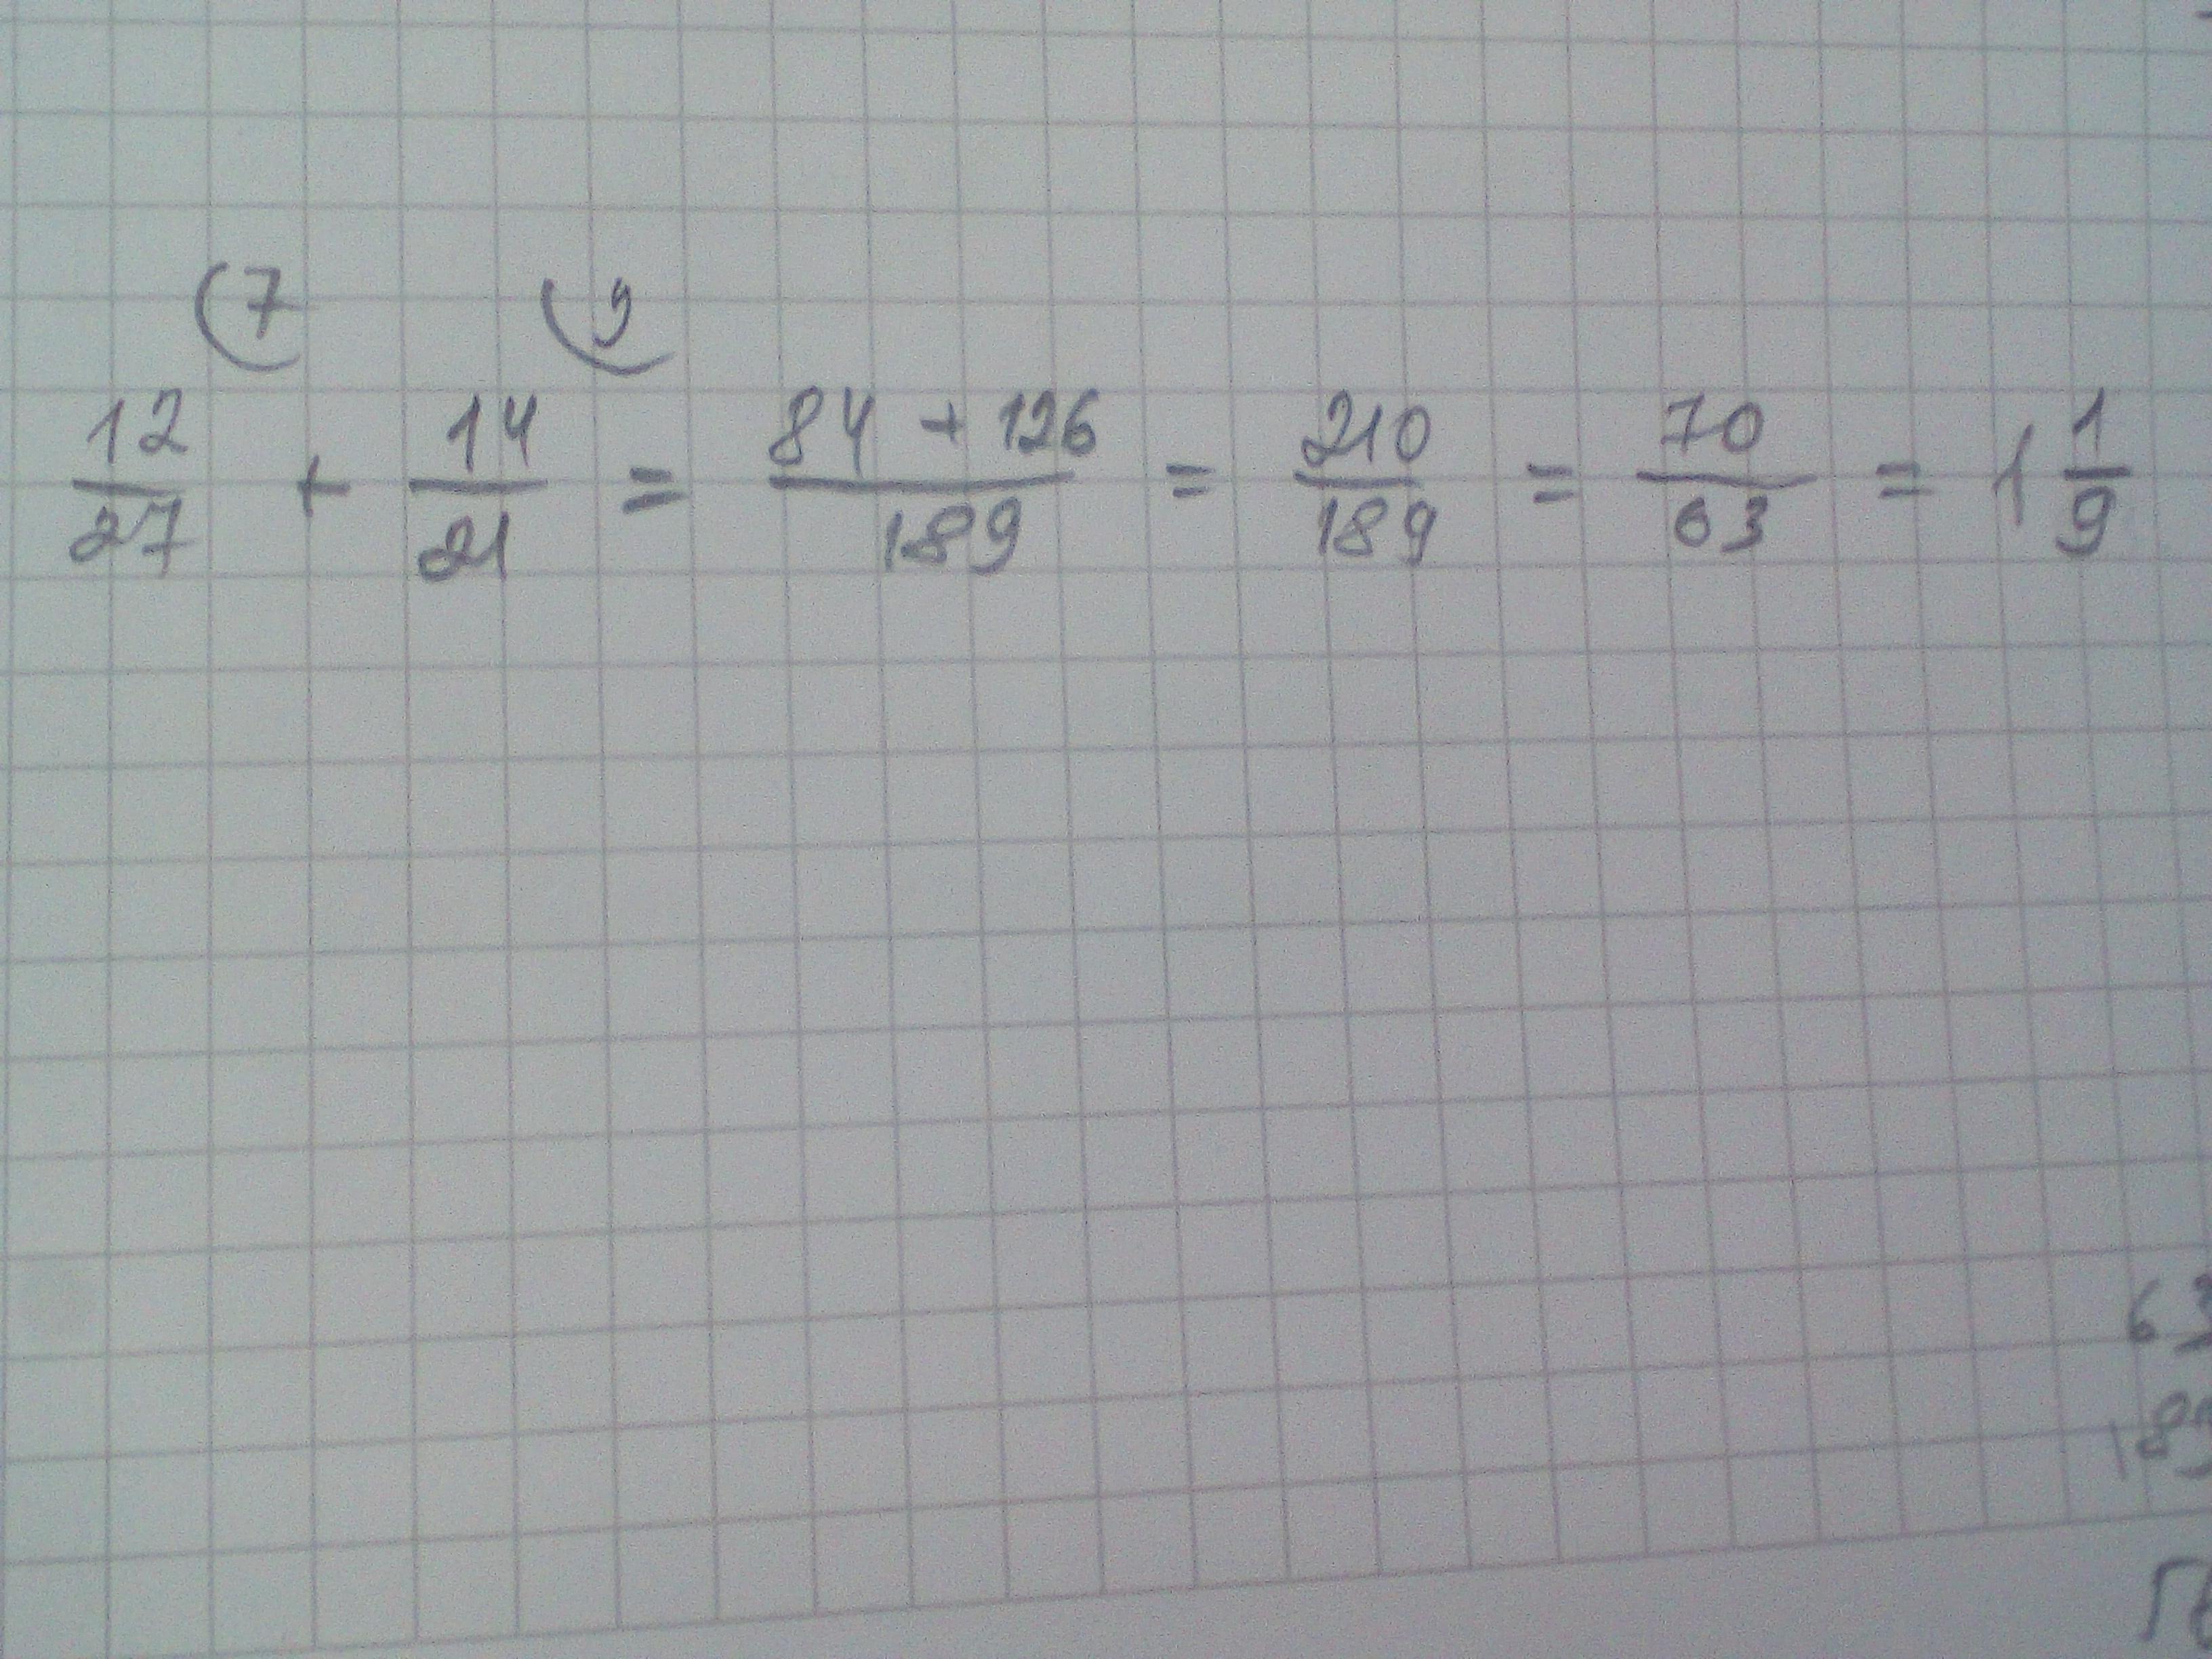 7 9
12/27 + 14/21 = 84 + 126/189 = 210/189 = 70/63 = 1 1/9
63
189